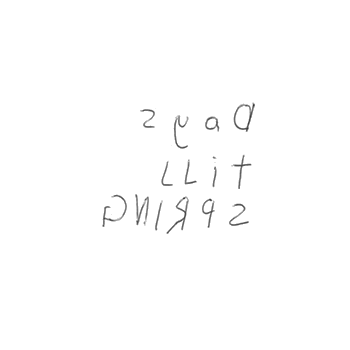 Days
till
SPRING